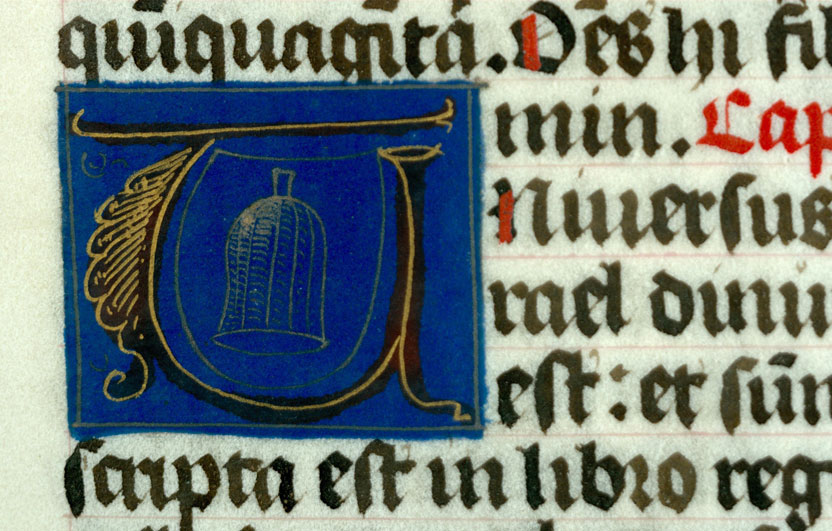 quīquagītā. Oēs hi fil
min. Cap
Uniuersus
rael dinu
est : et sūm
scripta est in libro reg